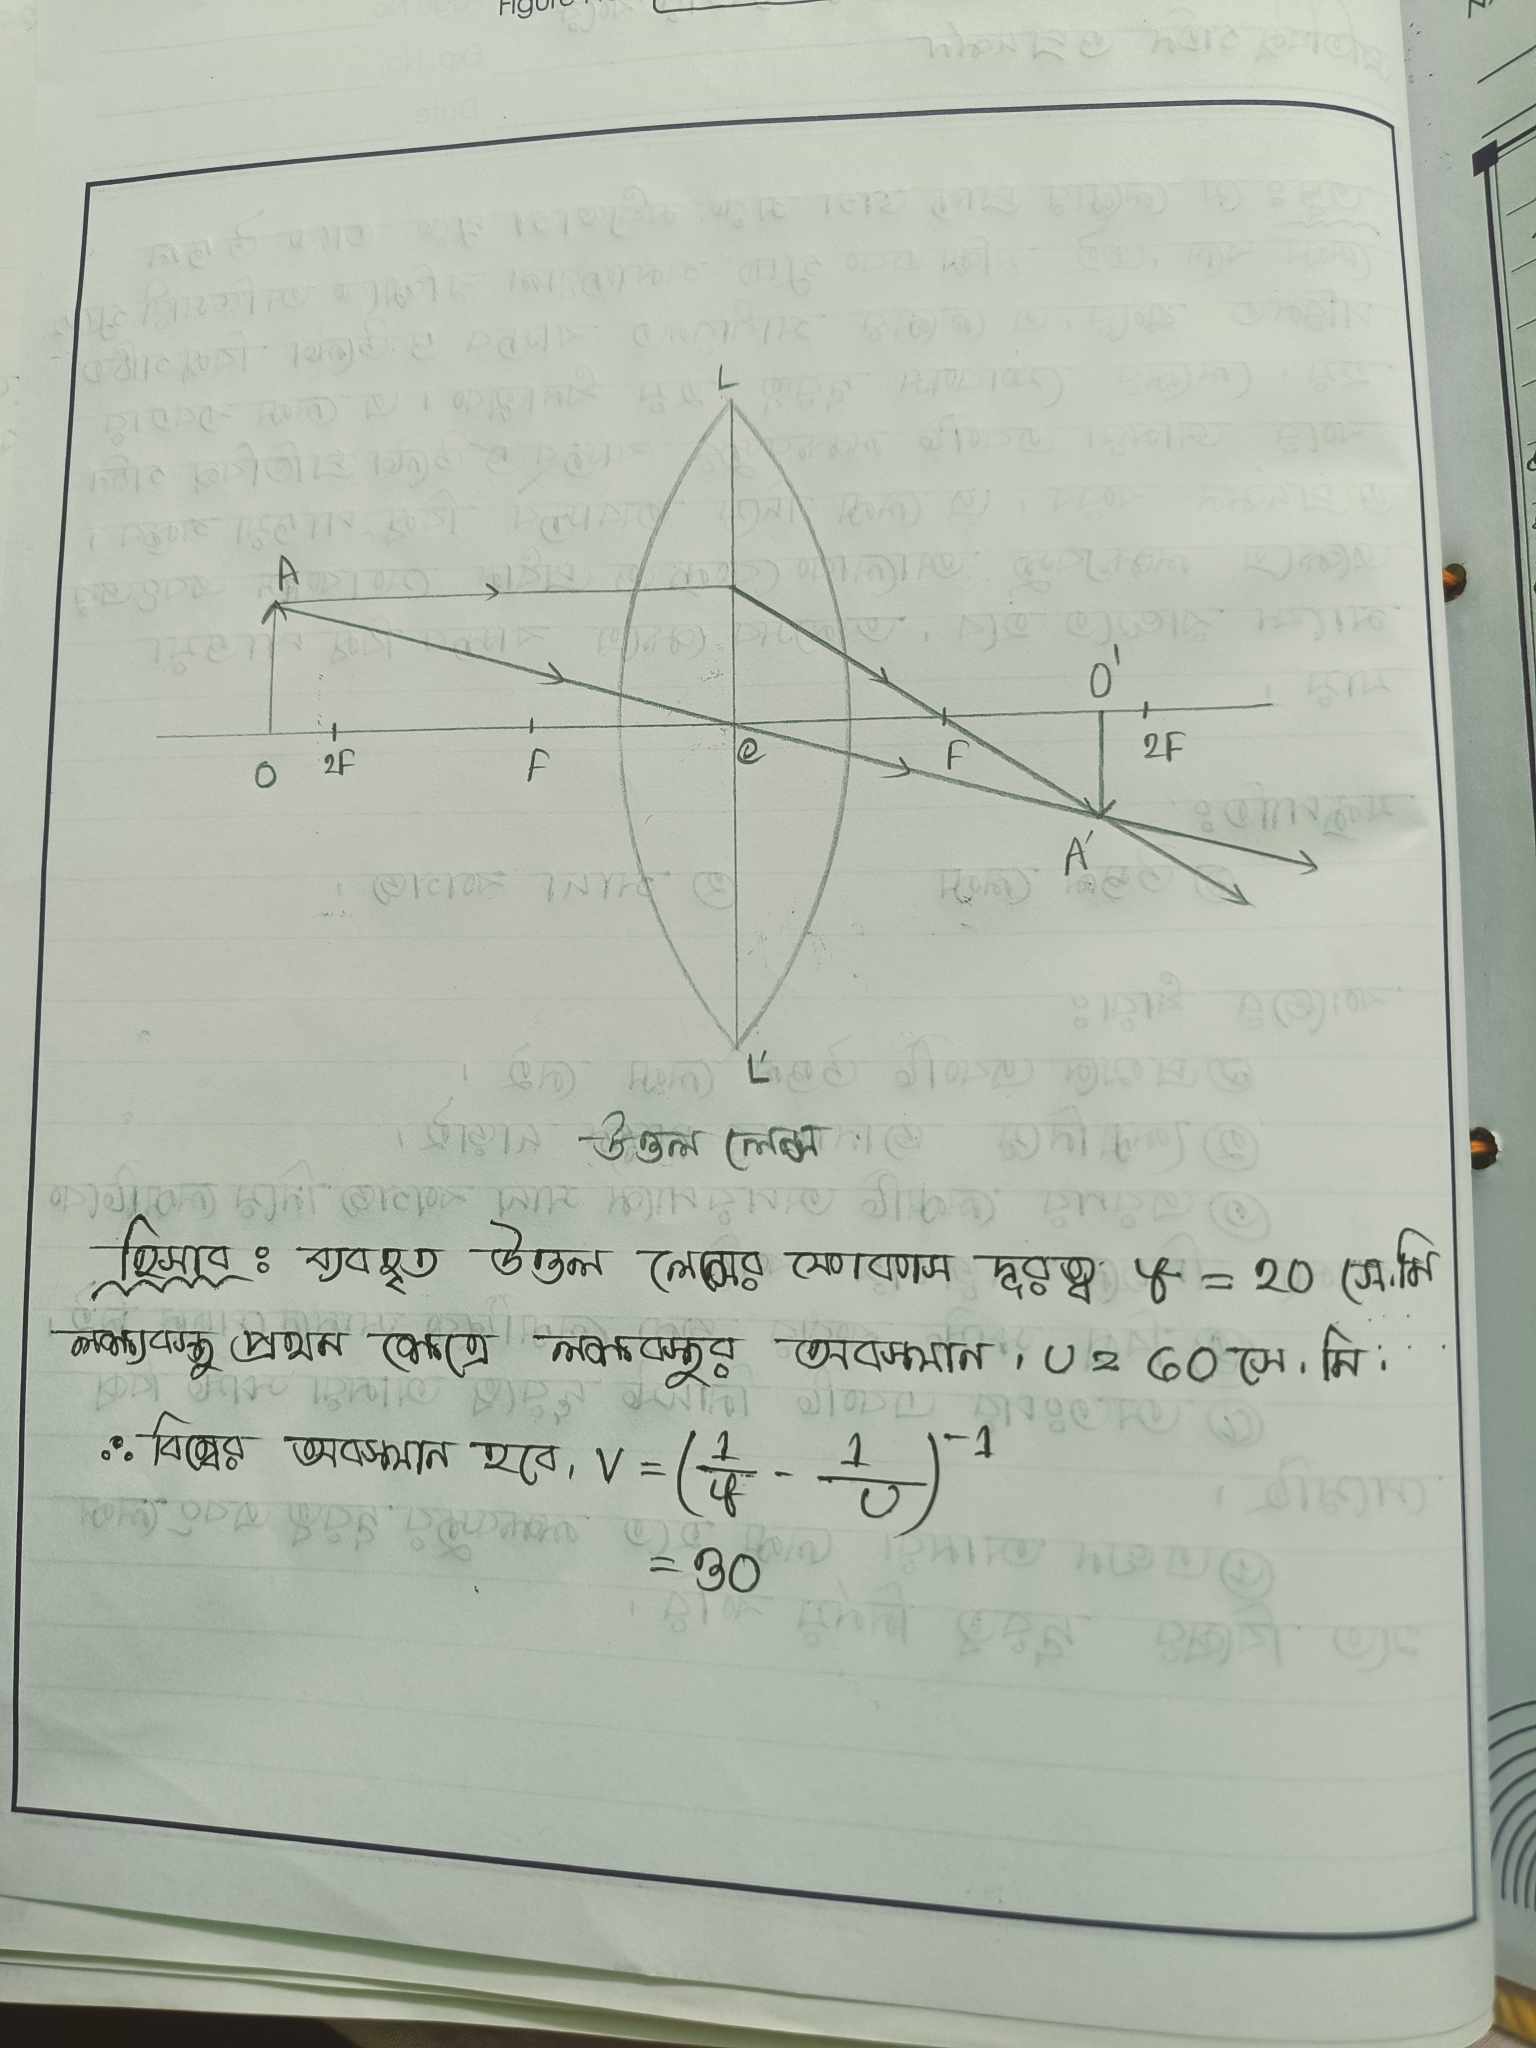 Figure
L
A
O'
O
2F
F
C
F
2F
A'
L'
উত্তল লেন্স
হিসাব: ব্যবহৃত উত্তল লেন্সের ফোকাস দূরত্ব f = 20 সে.মি
লক্ষ্যবস্তু প্রথম ক্ষেত্রে লক্ষ্যবস্তুর অবস্থান, U = 60 সে. মি.
∴ বিম্বের অবস্থান হবে, V = (1/f - 1/U)^-1
= 30